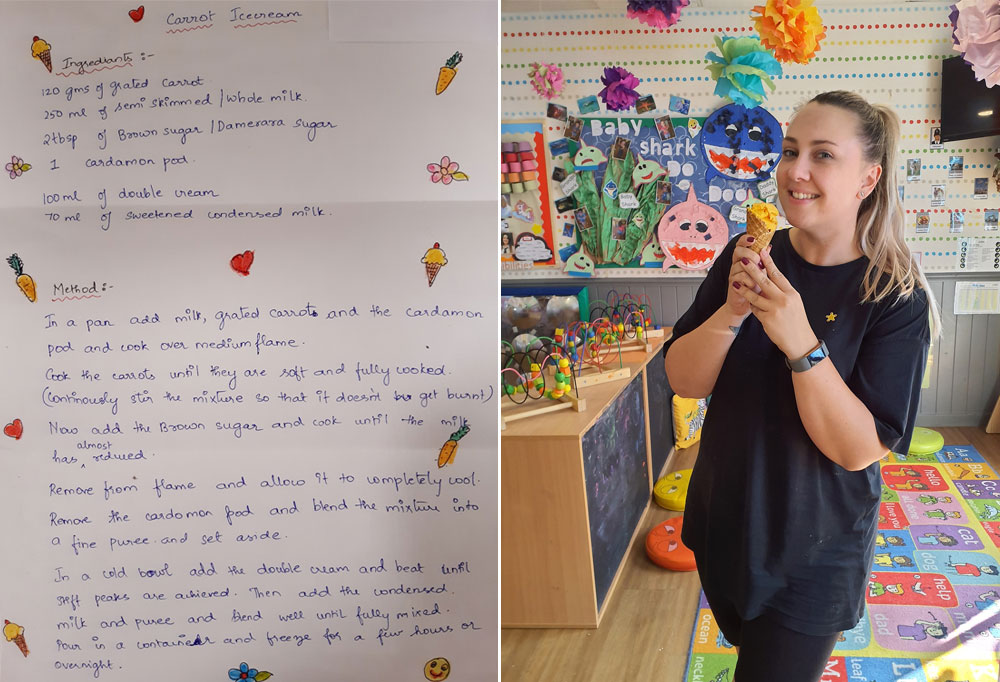 Carrot Icecream
Ingrediants :-
120 gms of grated carrot.
250 ml of semi skimmed / whole milk.
2 tbsp of Brown sugar / Damerara sugar
1 cardamon pod.
100 ml of double cream
70 ml of sweetened condensed milk.
Method :-
In a pan add milk, grated carrots and the cardamon
pod and cook over medium flame.
Cook the carrots until they are soft and fully cooked.
(Continously stir the mixture so that it doesn't get burnt)
Now add the Brown sugar and cook until the milk
has almost reduced.
Remove from flame and allow it to completely cool.
Remove the cardomon pod and blend the mixture into
a fine puree and set aside.
In a cold bowl add the double cream and beat until
stiff peaks are achieved. Then add the condensed
milk and puree and blend well until fully mixed.
Pour in a container and freeze for a few hours or
overnight.
Baby
shark
Do
Doo
hello
I love you
cat
dog
help
dad
ocean
necklace
Leaf